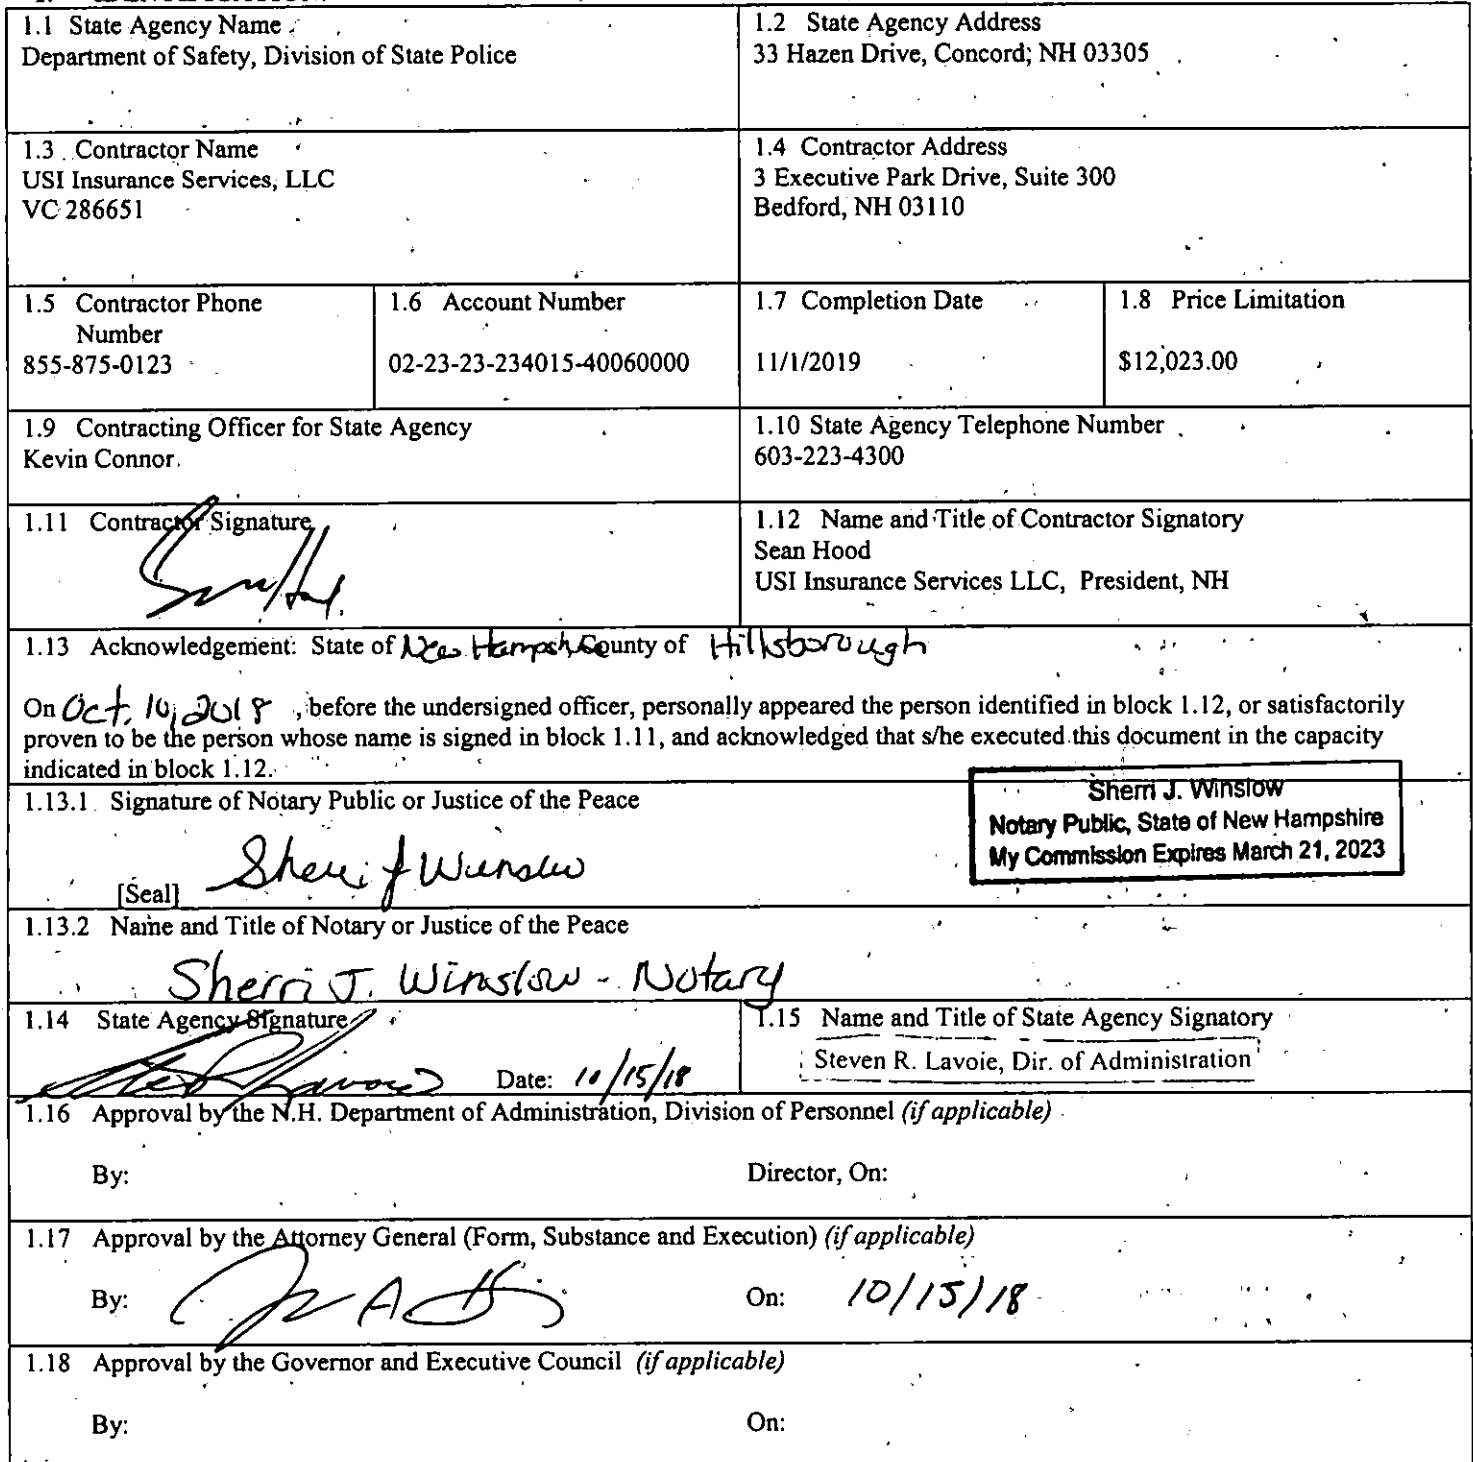 1.1 State Agency Name
Department of Safety, Division of State Police
1.2 State Agency Address
33 Hazen Drive, Concord, NH 03305
1.3 Contractor Name
USI Insurance Services, LLC
VC 286651
1.4 Contractor Address
3 Executive Park Drive, Suite 300
Bedford, NH 03110
1.5 Contractor Phone
Number
855-875-0123
1.6 Account Number
02-23-23-234015-40060000
1.7 Completion Date
11/1/2019
1.8 Price Limitation
$12,023.00
1.9 Contracting Officer for State Agency
Kevin Connor
1.10 State Agency Telephone Number
603-223-4300
1.11 Contractor Signature
1.12 Name and Title of Contractor Signatory
Sean Hood
USI Insurance Services LLC, President, NH
1.13 Acknowledgement: State of New Hampsh County of Hillsborough
On Oct. 10, 2018, before the undersigned officer, personally appeared the person identified in block 1.12, or satisfactorily
proven to be the person whose name is signed in block 1.11, and acknowledged that s/he executed this document in the capacity
indicated in block 1.12.
1.13.1 Signature of Notary Public or Justice of the Peace
Sherri J Winslow
[Seal]
Sherri J. Winslow
Notary Public, State of New Hampshire
My Commission Expires March 21, 2023
1.13.2 Name and Title of Notary or Justice of the Peace
Sherri J. Winslow - Notary
1.14 State Agency Signature
Date: 10/15/18
1.15 Name and Title of State Agency Signatory
Steven R. Lavoie, Dir. of Administration
1.16 Approval by the N.H. Department of Administration, Division of Personnel (if applicable)
By:
Director, On:
1.17 Approval by the Attorney General (Form, Substance and Execution) (if applicable)
By:
On: 10/15/18
1.18 Approval by the Governor and Executive Council (if applicable)
By:
On: